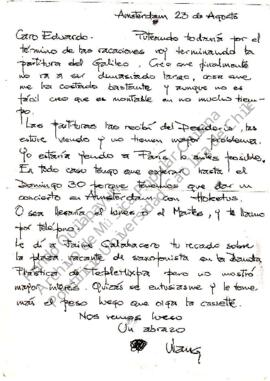 Amsterdam 23 de Agosto
Caro Eduardo. Puteando todavía por el
término de las vacaciones voy terminando la
partitura del Galileo. Creo que finalmente
no va a ser demasiado largo, cosa que
me ha costado bastante y aunque no es
fácil creo que es montable en no mucho tiem-
po.
Las partituras las recibí del Desiderio, las
estuve viendo y no tienen mayor problema.
Yo estaría yendo a París antes posible.
En todo caso tengo que esperar hasta el
Domingo 30 porque tenemos que dar un
concierto en Amsterdam con Hoketus.
O sea llegaría el lunes o el Martes, y te llamo
por teléfono.
Le di a Jaime Calabacero tu recado sobre
la plaza vacante de saxofonista en la Banda
Phástica de pero no mostró
mayor interés. Quizás se entusiasme y le tome
más el peso luego que oiga la cassette.
Nos vemos luego
Un abrazo